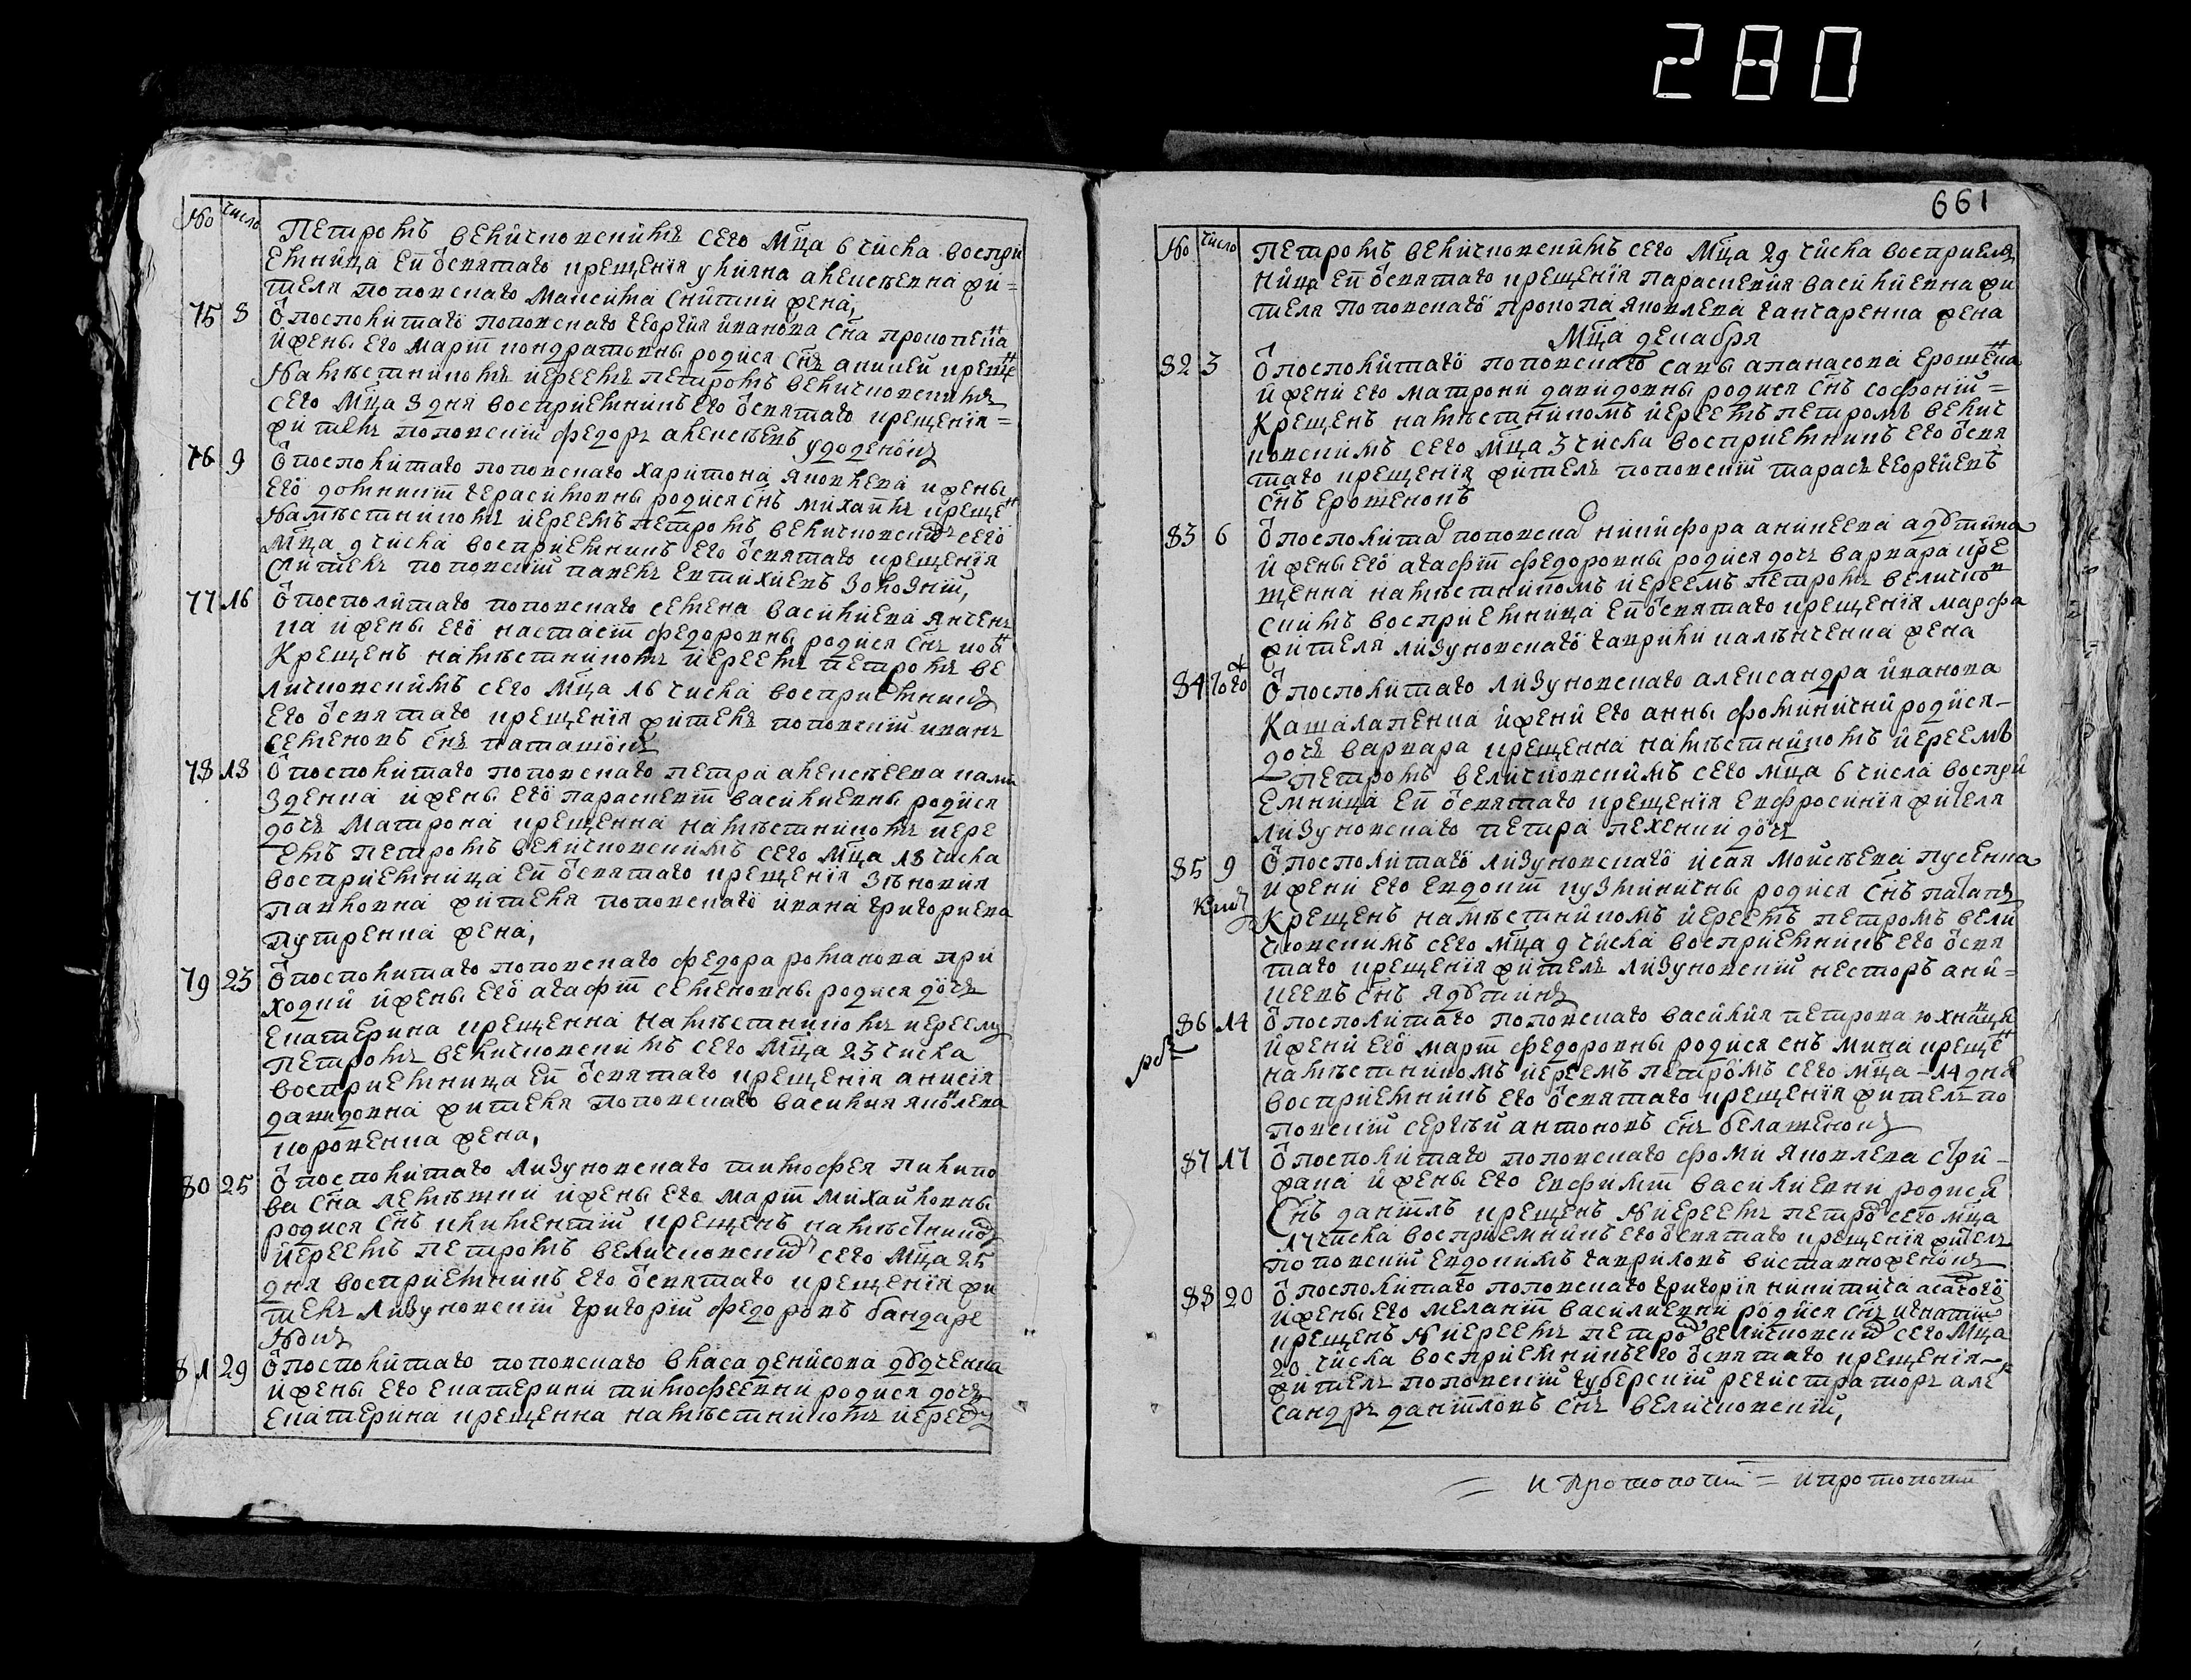 280
№ число
Петромъ величковскимъ сего мца 6 числа воспри
емница ея ѿ святаго крещения улияна алексѣевна жи=
теля поповского максима снитки жена,
75 8 ѿ посполитаго поповского георгия иванова сна прокопен
и жены его марѳи кондратовны родися снъ аникей крещен
намѣстникомъ иереемъ петромъ величковскимъ
сего мца 3 дня восприемникъ его ѿ святаго крещения=
житель поповский федоръ алексѣевъ удоденокъ
76 9 ѿ посполитаго поповскаго харитона яковлева и жены
его домникии герасимовны родися снъ михаилъ крещен
намѣстникомъ иереемъ петромъ величковским сего
мца 9 числа восприемникъ его ѿ святаго крещения
житель поповский павелъ евтихиевъ золозний,
77 16 ѿ посполитаго поповскаго семена василиева ясен
ка и жены его настасии федоровны родися снъ
крещенъ намѣстникомъ иереемъ петромъ ве
личковскимъ сего мца 16 числа восприемникъ
его ѿ святаго крещения житель поповский иванъ
семеновъ снъ
78 18 ѿ посполитаго поповскаго петра алексѣева
зденка и жены его параскевии василиевны родися
дочь матрона крещенна намѣстникомъ иере
емъ петромъ величковскимъ сего мца 18 числа
восприемница ея ѿ святаго крещения зѣновия
павловна жителя поповскаго ивана григориева
путренка жена,
79 23 ѿ посполитаго поповскаго федора романова при
ходки и жены его агафии семеновны родися дочь
екатерина крещенна намѣстникомъ иереемъ
петромъ величковскимъ сего мца 23 числа
восприемница ея ѿ святаго крещения анисия
давидовна жителя поповскаго василия яковлева
коровенка жена,
80 25 ѿ посполитаго лизуновскаго тимофея пилипо
ва сна лемѣшки и жены его марѳи михайловны
родися снъ климентий крещенъ намѣстником
иереемъ петромъ величковским сего мца 25
дня восприемникъ его ѿ святаго крещения жи
тель лизуновский григорий федоровъ бандаре
нокъ
81 29 ѿ посполитаго поповскаго власа денисова дудченка
и жены его екатерини тимофеевни родися дочь
екатерина крещенна намѣстникомъ иереем
661
№ число
петромъ величковскимъ сего мца 29 числа восприем
ница ея ѿ святаго крещения параскевия василиевна жи
теля поповскаго прокопа яковлева ганчаренка жена
Мца декабря
82 3 ѿ посполитаго поповскаго савы апанасова ерошенка
и жени его матрони давидовны родися снъ софоний=
крещенъ намѣстникомъ иереемъ петромъ велич
ковскимъ сего мца 3 числа восприемникъ его ѿ свя
таго крещения житель поповский тарасъ георгиевъ
снъ ерошенокъ
83 6 ѿ посполитаго поповскаго никифора аникеева
и жены его агафии федоровны родися дочь варвара кре
щенна намѣстникомъ иереемъ петромъ величков
скимъ восприемница ея ѿ святаго крещения марфа
жителя лизуновскаго гаврили калѣнченка жена
84 того ж ѿ посполитаго лизуновскаго александра иванова
кашалапенка и жени его анны фоминични родися-
дочь варвара крещенна намѣстникомъ иереемъ
петромъ величковскимъ сего мца 6 числа воспри
емница ея ѿ святаго крещения евфросиния жителя
лизуновскаго петра пехенки дочь
85 9 ѿ посполитаго лизуновскаго исая мойсѣева пусенка
и жени его евдокии кузминичны родися снъ патапъ
крещенъ намѣстникомъ иереемъ петромъ вели
чковскимъ сего мца 9 числа восприемникъ его ѿ свя
таго крещения житель лизуновский несторъ ани=
кеевъ снъ
86 14 ѿ посполитаго поповскаго василия петрова
и жени его марѳи федоровны родися снъ мина крещен
намѣстникомъ иереемъ петромъ сего мца - 14 дня
восприемникъ его ѿ святаго крещения житель по
повский сергѣй антоновъ снъ белашенокъ
87 17 ѿ посполитаго поповскаго фоми яковлева стри-
жака и жены его евфимии василиевни родися
снъ даниилъ крещенъ н иереемъ петром сего мца
17 числа восприемникъ его ѿ святаго крещения житель
поповский евдокимъ гавриловъ
88 20 ѿ посполитаго поповскаго григория никитича
и жены его мелании василиевни родися снъ игнатий
крещенъ н иереемъ петром величковским сего мца
20 числа восприемникъ его ѿ святаго крещения-
житель поповский губерский регистраторъ алек
сандръ данииловъ снъ величковский,
= и протопопии = и протопопии